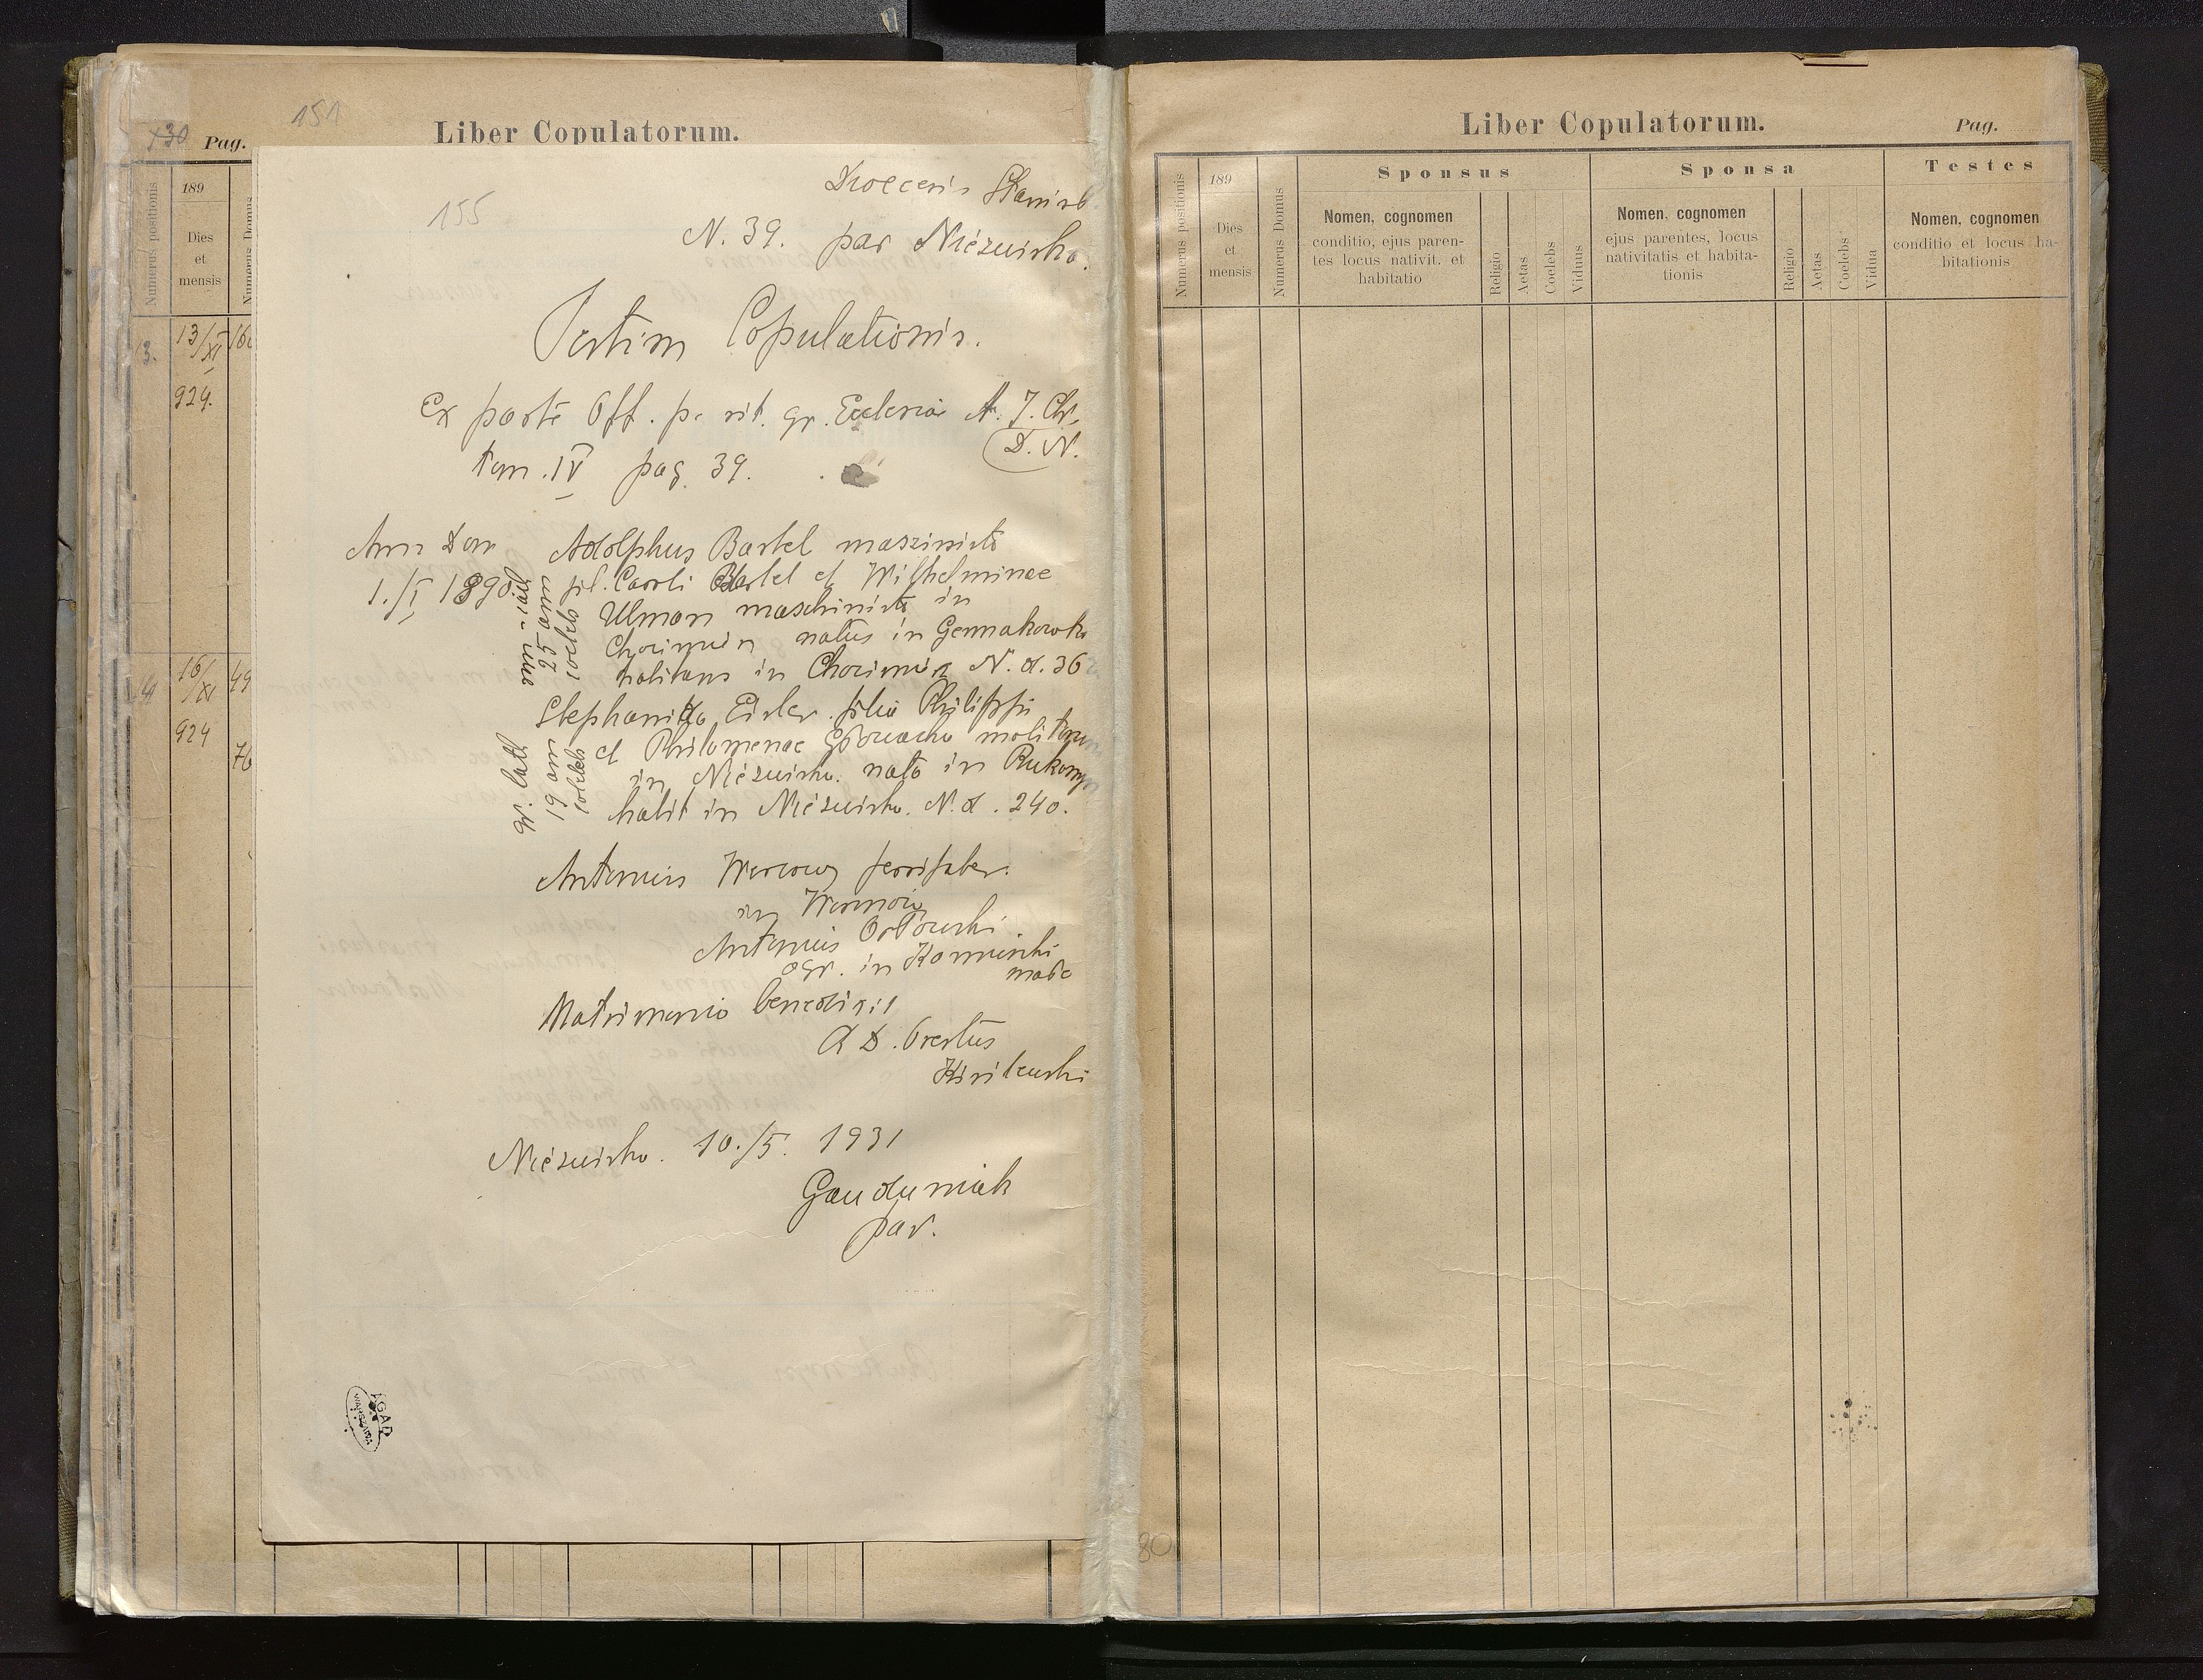 151
130 Pag.
Liber Copulatorum.
Numerus positionis
189
Dies
et
mensis
Numerus Domus
13/XI
924.
16/XI
924
49
76
155
Dioecesis Stanisl
N. 39. par Niézwisko.
Testim Copulationis.
Ex parte Off. p. rit. gr. Ecclesiae A. J. Chr.
D. N.
tom. IV pag 39.
Ann Dom
1./I 1890
25 ann
coelebs
Adolphus Bartel maszinista
fil. Caroli Bartel et Wilhelminae
Ulman maschinista in
Chocimierz natus in Germakowka
habitans in Chocimierz N. d. 36
gr. cath
19 ann
coelebs
Stephania Eisler filia Philippi
et Philomenae molitorum
in Niézwisko. nata in
habit in Niézwisko. N. d. 240.
Antonius ferrifaber.
in
Antonius Orłowski
agr. in
Matrimonio benedixit
R D. Orestus
Niézwisko. 10./5. 1931
Gauduniak
par.
AGAD
WARSZAWA
Liber Copulatorum.
Pag.
Numerus positionis
189
Dies
et
mensis
Numerus Domus
Sponsus
Nomen, cognomen
conditio, ejus paren-
tes locus nativit. et
habitatio
Religio
Aetas
Coelebs
Viduus
Sponsa
Nomen, cognomen
ejus parentes, locus
nativitatis et habita-
tionis
Religio
Aetas
Coelebs
Vidua
Testes
Nomen, cognomen
conditio et locus ha-
bitationis
80